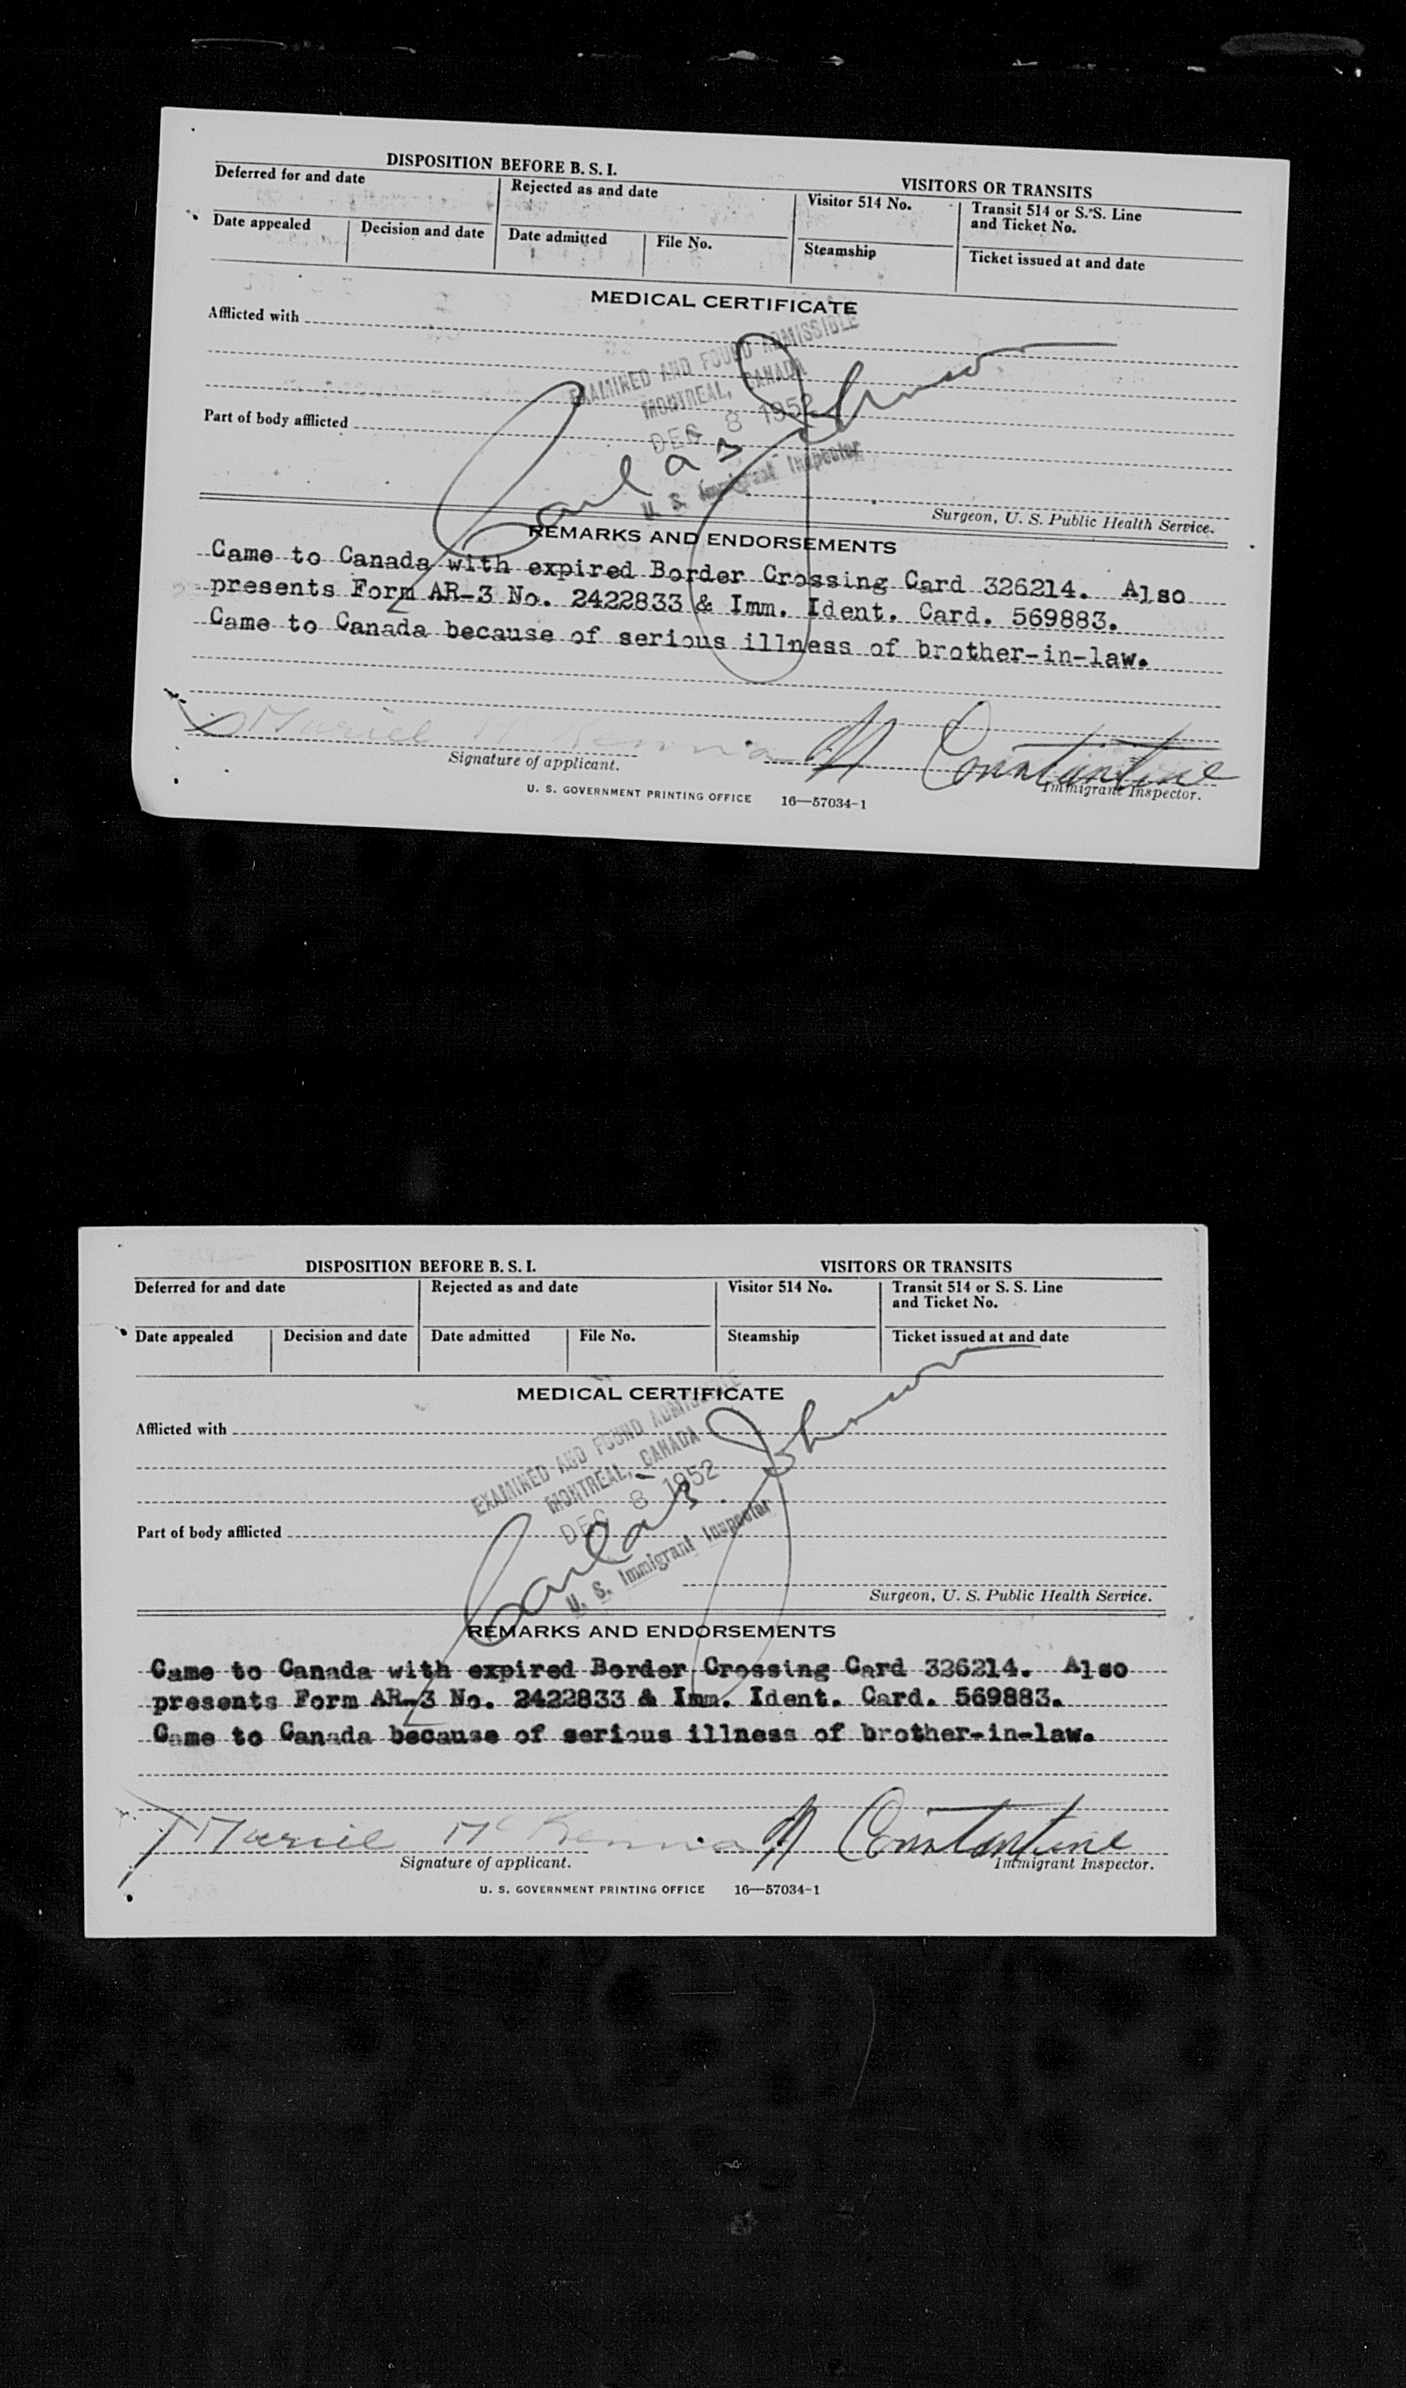 DISPOSITION BEFORE B. S. I.
VISITORS OR TRANSITS
Deferred for and date
Rejected as and date
Visitor 514 No.
Transit 514 or S. S. Line
and Ticket No.
Date appealed
Decision and date
Date admitted
File No.
Steamship
Ticket issued at and date
MEDICAL CERTIFICATE
Afflicted with
EXAMINED AND FOUND ADMISSIBLE
MONTREAL, CANADA
DEC 8 1952
U. S. Immigrant Inspector
Johnson
Part of body afflicted
Surgeon, U. S. Public Health Service.
REMARKS AND ENDORSEMENTS
Came to Canada with expired Border Crossing Card 326214. Also
presents Form AR-3 No. 2422833 & Imm. Ident. Card. 569883.
Came to Canada because of serious illness of brother-in-law.
Muriel McKenna
N Constantine
Signature of applicant.
Immigrant Inspector.
U. S. GOVERNMENT PRINTING OFFICE 16—57034-1
DISPOSITION BEFORE B. S. I.
VISITORS OR TRANSITS
Deferred for and date
Rejected as and date
Visitor 514 No.
Transit 514 or S. S. Line
and Ticket No.
Date appealed
Decision and date
Date admitted
File No.
Steamship
Ticket issued at and date
MEDICAL CERTIFICATE
Afflicted with
EXAMINED AND FOUND ADMISSIBLE
MONTREAL, CANADA
DEC 8 1952
U. S. Immigrant Inspector
Johnson
Part of body afflicted
Surgeon, U. S. Public Health Service.
REMARKS AND ENDORSEMENTS
Came to Canada with expired Border Crossing Card 326214. Also
presents Form AR-3 No. 2422833 & Imm. Ident. Card. 569883.
Came to Canada because of serious illness of brother-in-law.
Muriel McKenna
N Constantine
Signature of applicant.
Immigrant Inspector.
U. S. GOVERNMENT PRINTING OFFICE 16—57034-1